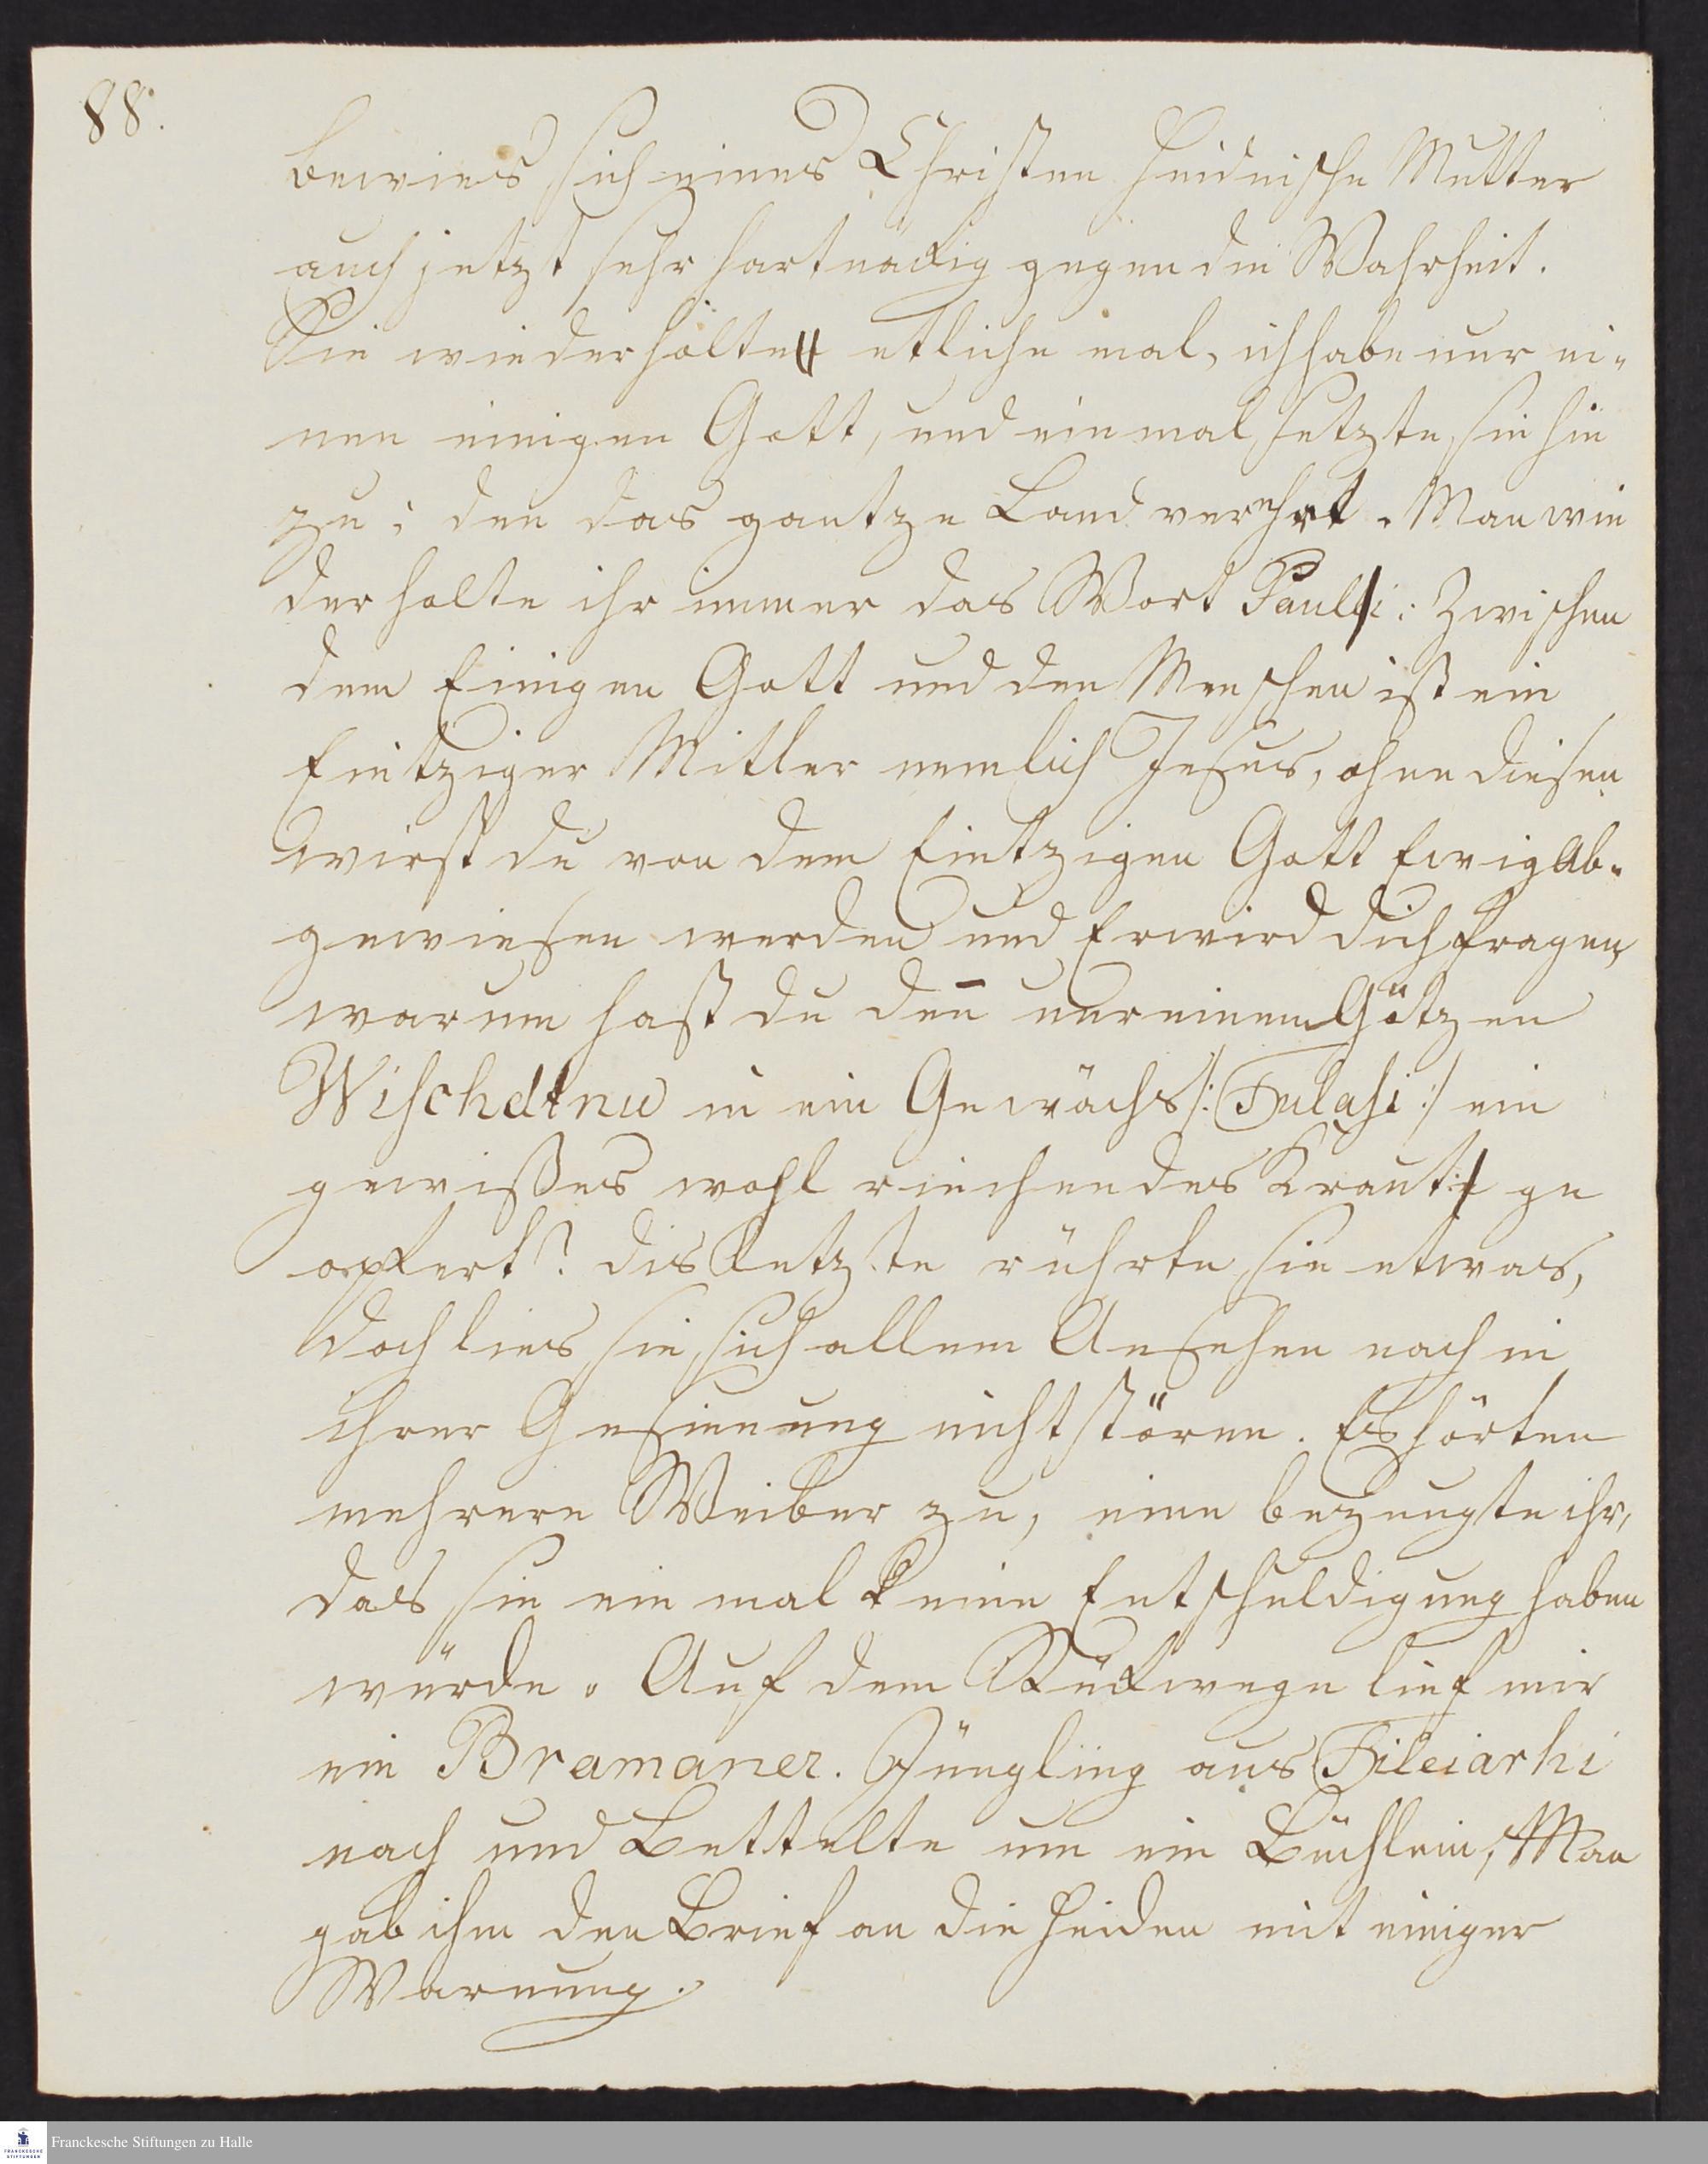 88.
bewies sich eines Christen heidnische Mutter
auch jetzt sehr hartnäckig gegen die Wahrheit.
Sie wiederholte etliche mal, ich habe nur ei-
nen einigen Gott, und einmal setzte sie hin
zu: den das gantze Land verehrt. Man wie
der holte ihr immer das Wort Pauli: Zwischen
dem Einigen Gott und den Menschen ist ein
Eintziger Mitler nemlich Jesus, ohne diesen
wirst du von dem Eintzigen Gott Ewig Ab-
gewiesen werden und Er wird dich fragen,
warum hast du deñ nur einem Götzen
Wischtnu in ein Gewächs /: Tulasi :/ ein
gewißes wohl riechendes Kraut :/ ge
opfert? dis letzte rührte sie etwas,
doch lies sie sich allem Ansehen nach in
ihrer Gesinnung nicht stören. Es hörten
mehrere Weiber zu, eine bezeugte ihr,
das sie ein mal keine Entschuldigung haben
würde. Auf dem Rückwege lief mir
ein Bramaner. Jüngling aus Tileiarhi
nach und Bettelte um ein Büchlein, Man
gab ihm den Brief an die Heiden mit einiger
Warnung.
Franckesche Stiftungen zu Halle
FRANCKESCHE
STIFTUNGEN